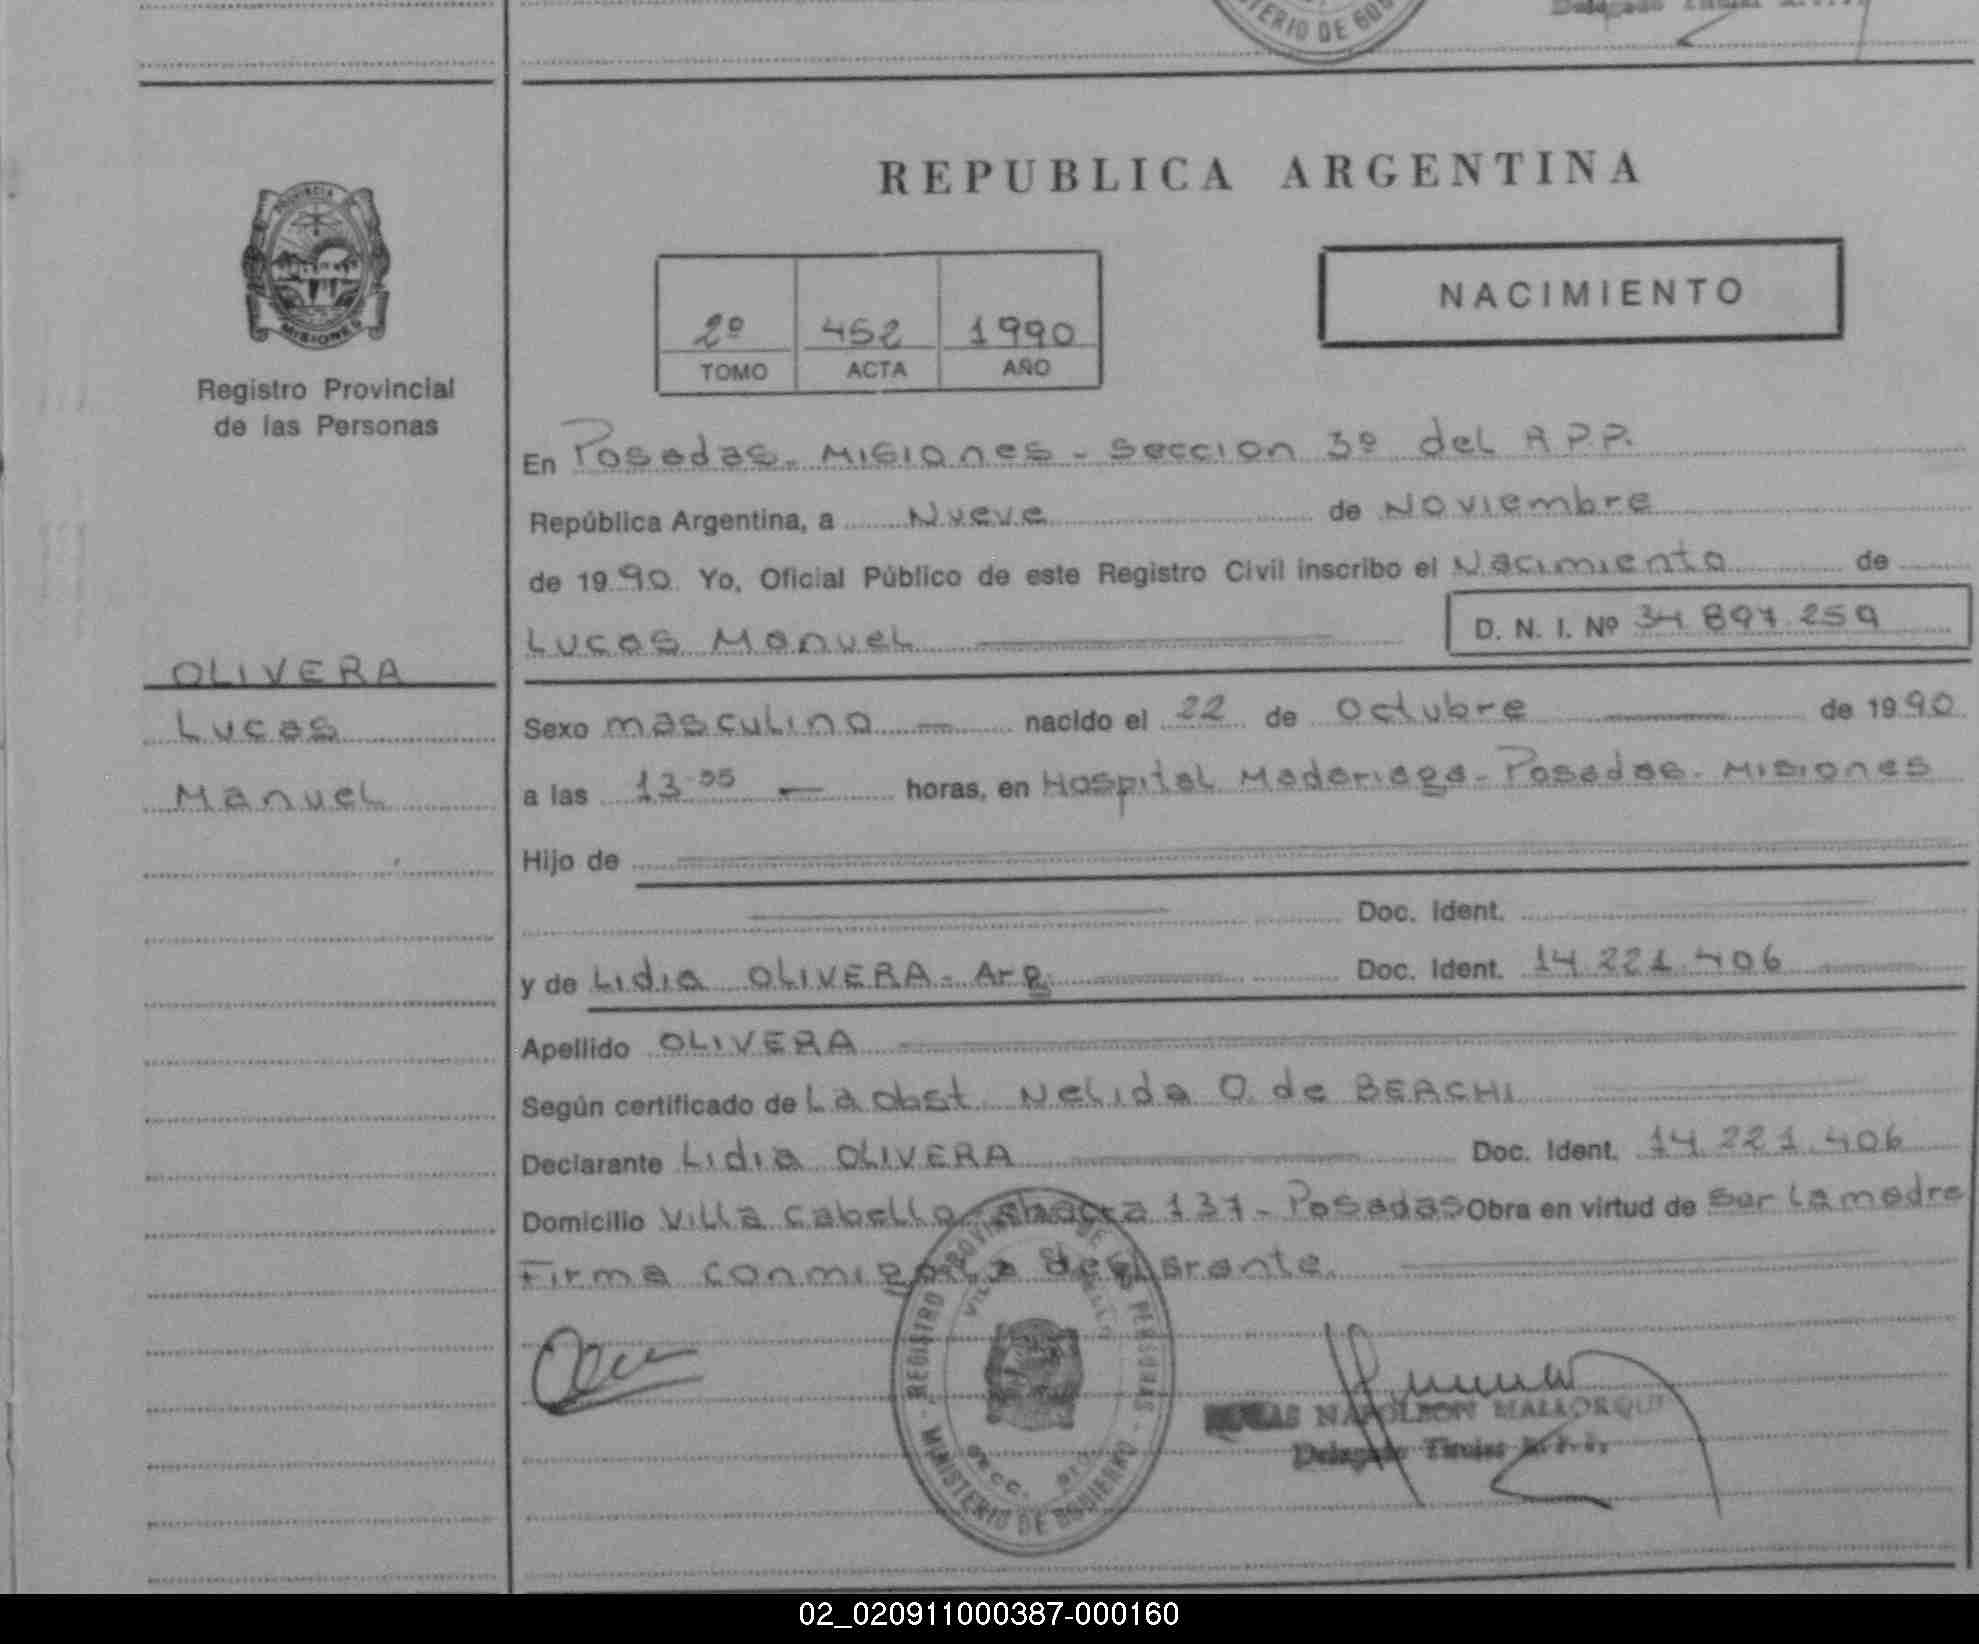 MINISTERIO DE GOB
Delegado Titular
REPUBLICA ARGENTINA
PROVINCIA
MISIONES
Registro Provincial
de las Personas
NACIMIENTO
2º 452 1990
TOMO ACTA AÑO
En Posadas - Misiones - Seccion 3º del R.P.P.
República Argentina, a Nueve de Noviembre
de 1990. Yo, Oficial Público de este Registro Civil inscribo el Nacimiento de
Lucas Manuel
D. N. I. Nº 34 897 259
OLIVERA
Lucas
Manuel
Sexo masculino nacido el 22 de Octubre de 1990
a las 13 horas, en Hospital Madariaga - Posadas - Misiones
Hijo de
Doc. Ident.
y de Lidia OLIVERA - Arg. Doc. Ident. 14 221.406
Apellido OLIVERA
Según certificado de La obst. Nelida O. de BEACHI
Declarante Lidia OLIVERA Doc. Ident. 14.221.406
Domicilio Villa Cabello chacra 137 - Posadas Obra en virtud de ser la madre
Firma conmigo la declarante.
REGISTRO PROVINCIAL DE LAS PERSONAS
VILLA CABELLO
SECC. 3ra.
MINISTERIO DE GOBIERNO
NAPOLEON MALLORQUI
Delegado Titular R.P.P.
02_020911000387-000160